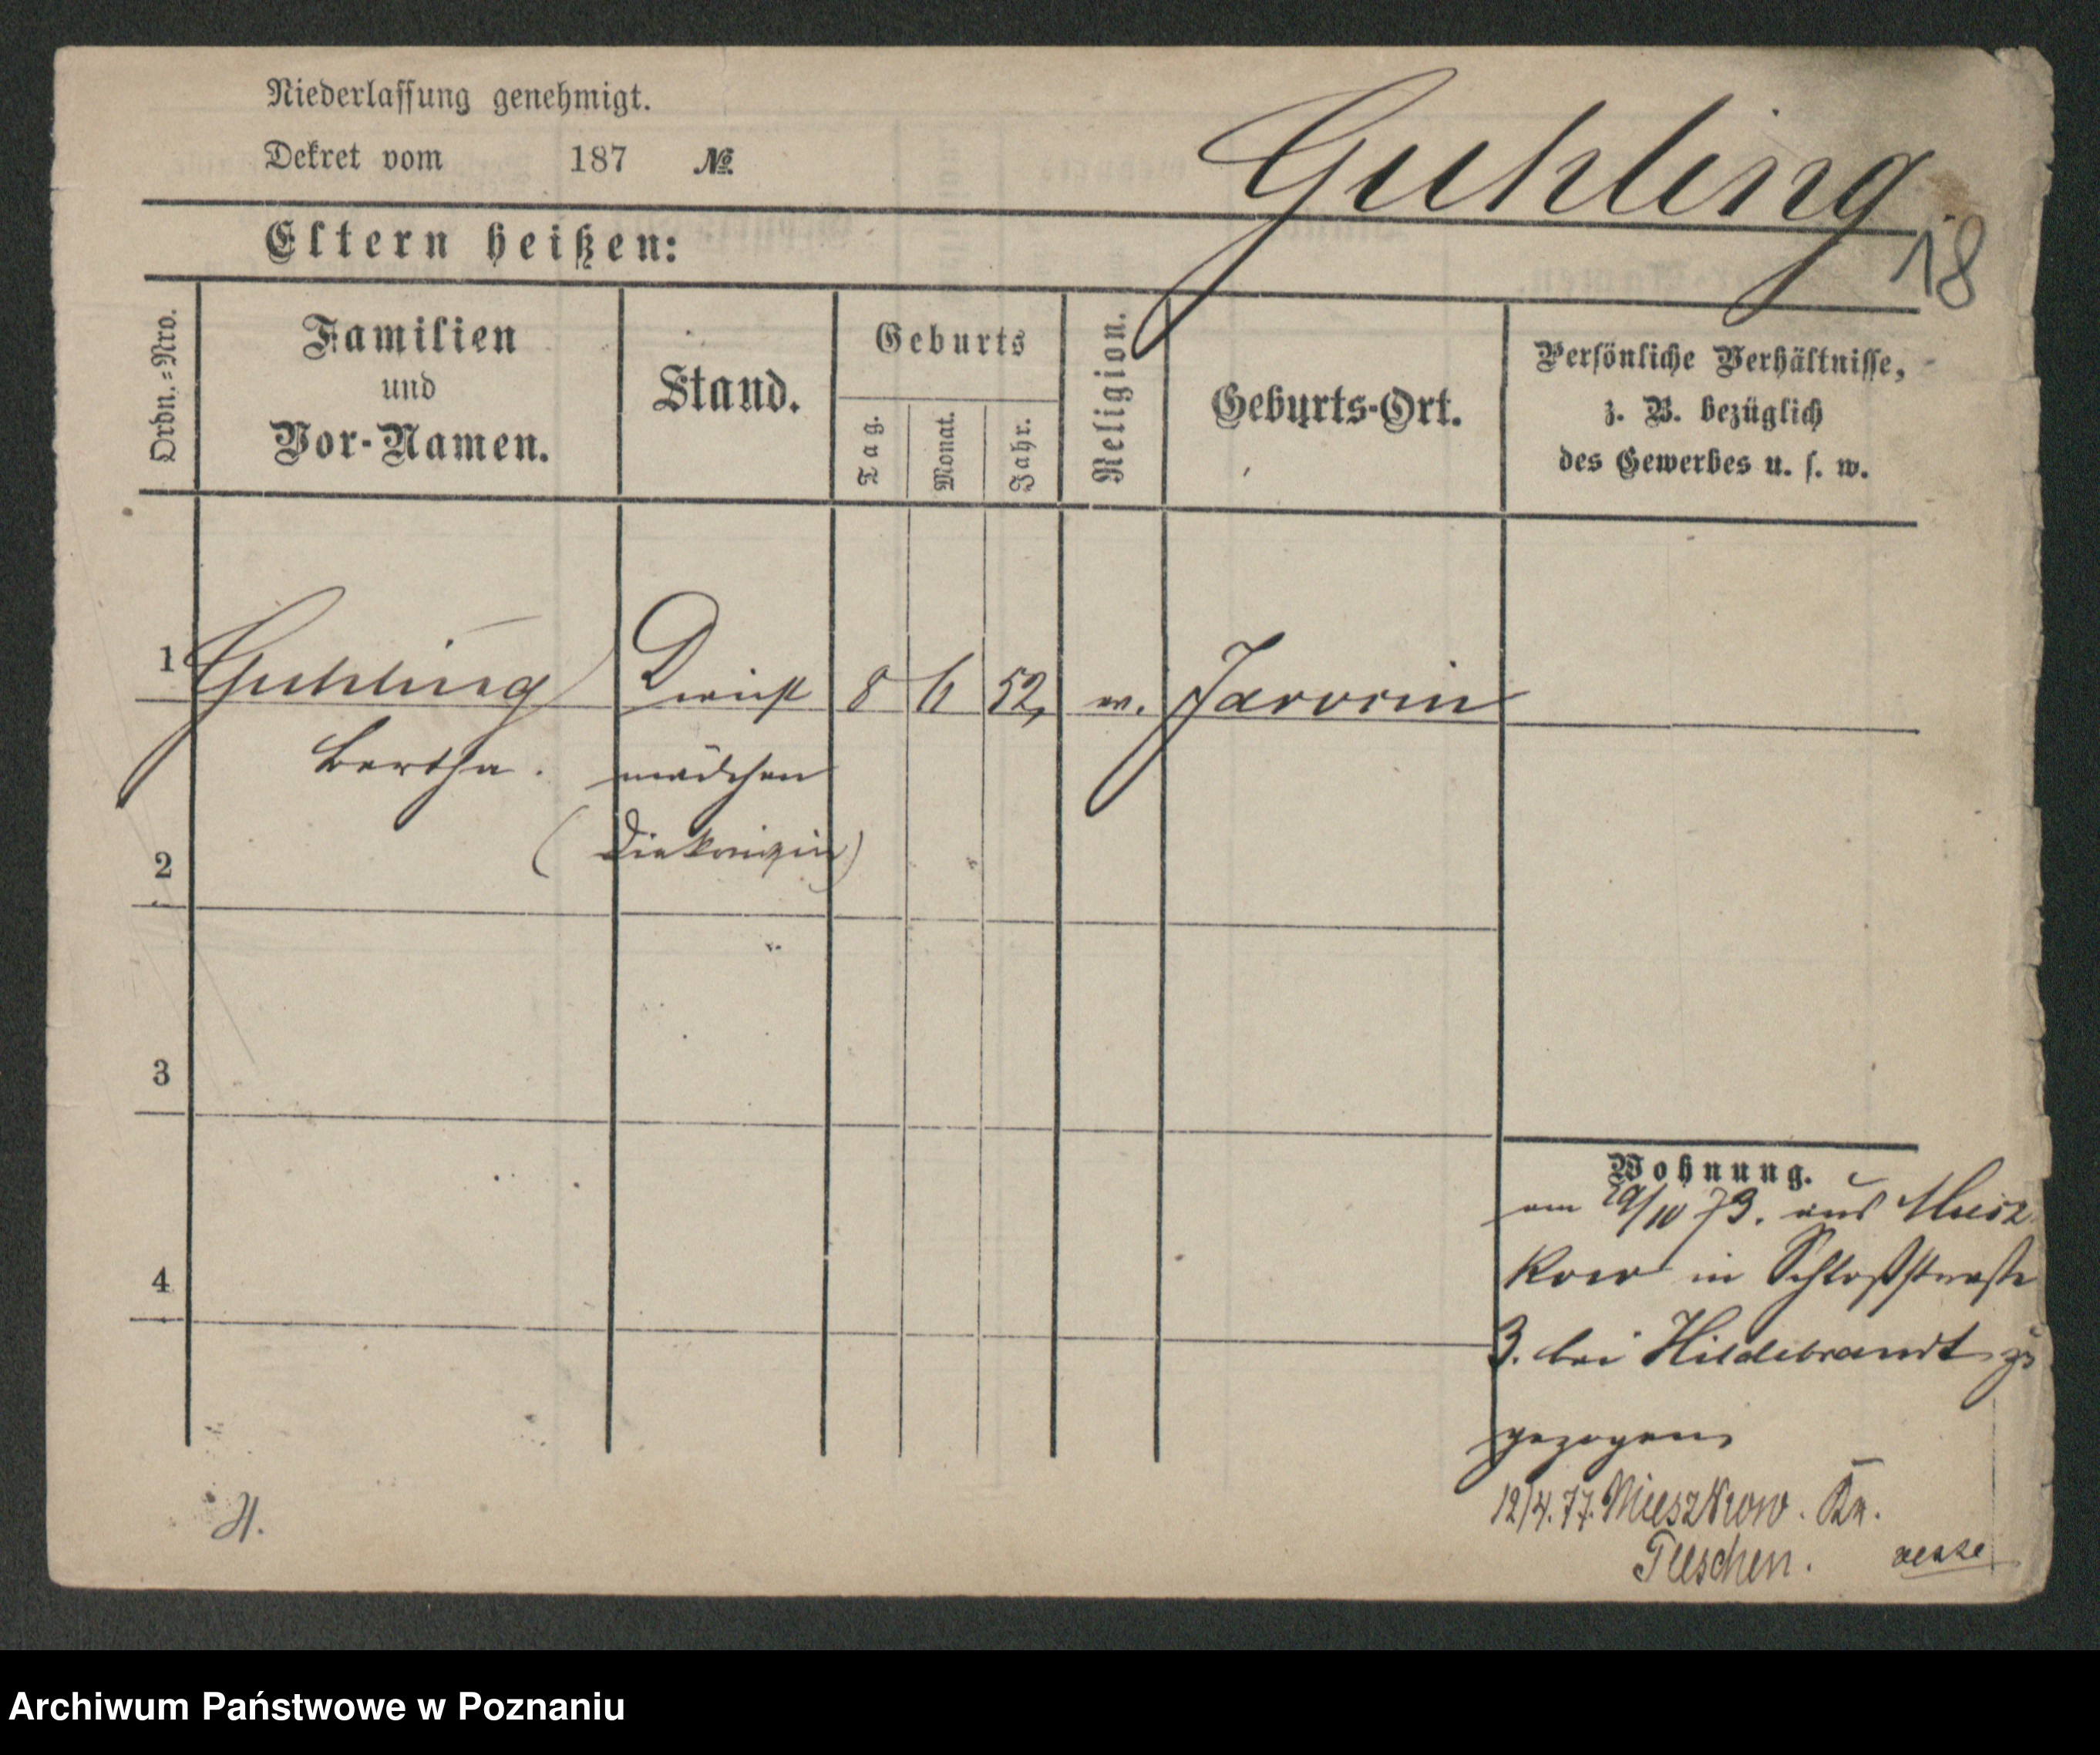 Niederlassung genehmigt.
Dekret vom 187 №
Guhling
18
Eltern heißen:
Ordn.=Nro.
Familien
und
Vor-Namen.
Stand.
Geburts
Tag.
Monat.
Jahr.
Religion.
Geburts-Ort.
Persönliche Verhältnisse,
z. B. bezüglich
des Gewerbes u. s. w.
1 Guhling Dienst 8 6 52, Jarocin
Bertha. mädchen
2 (Diakonissin)
3
4
Wohnung.
am 29/10 73. aus Miesz
kow in Schloßstraße
3. bei Hildebrandt zu
gezogen
12/4. 77. Mieszkow. Kr.
Pleschen.
Archiwum Państwowe w Poznaniu